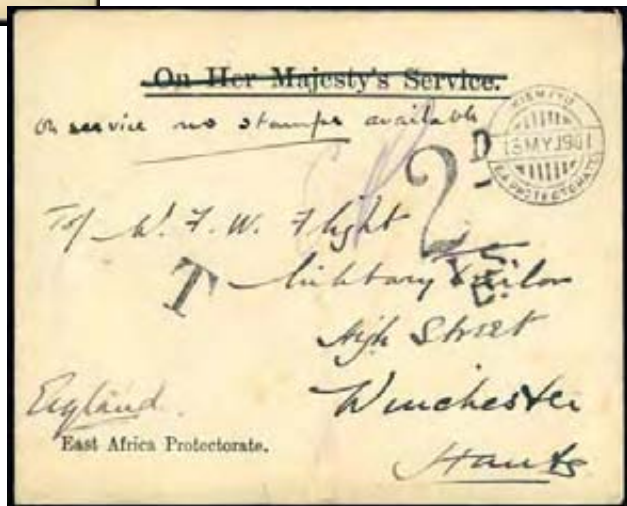 On Her Majesty's Service.
On service no stamps available
KISMAYU
13 MY 1901
E.A. PROTECTORATE
2D
To/ W. F. W. Flight
T
Military Tailor
High Street
Winchester
Hants
England.
East Africa Protectorate.